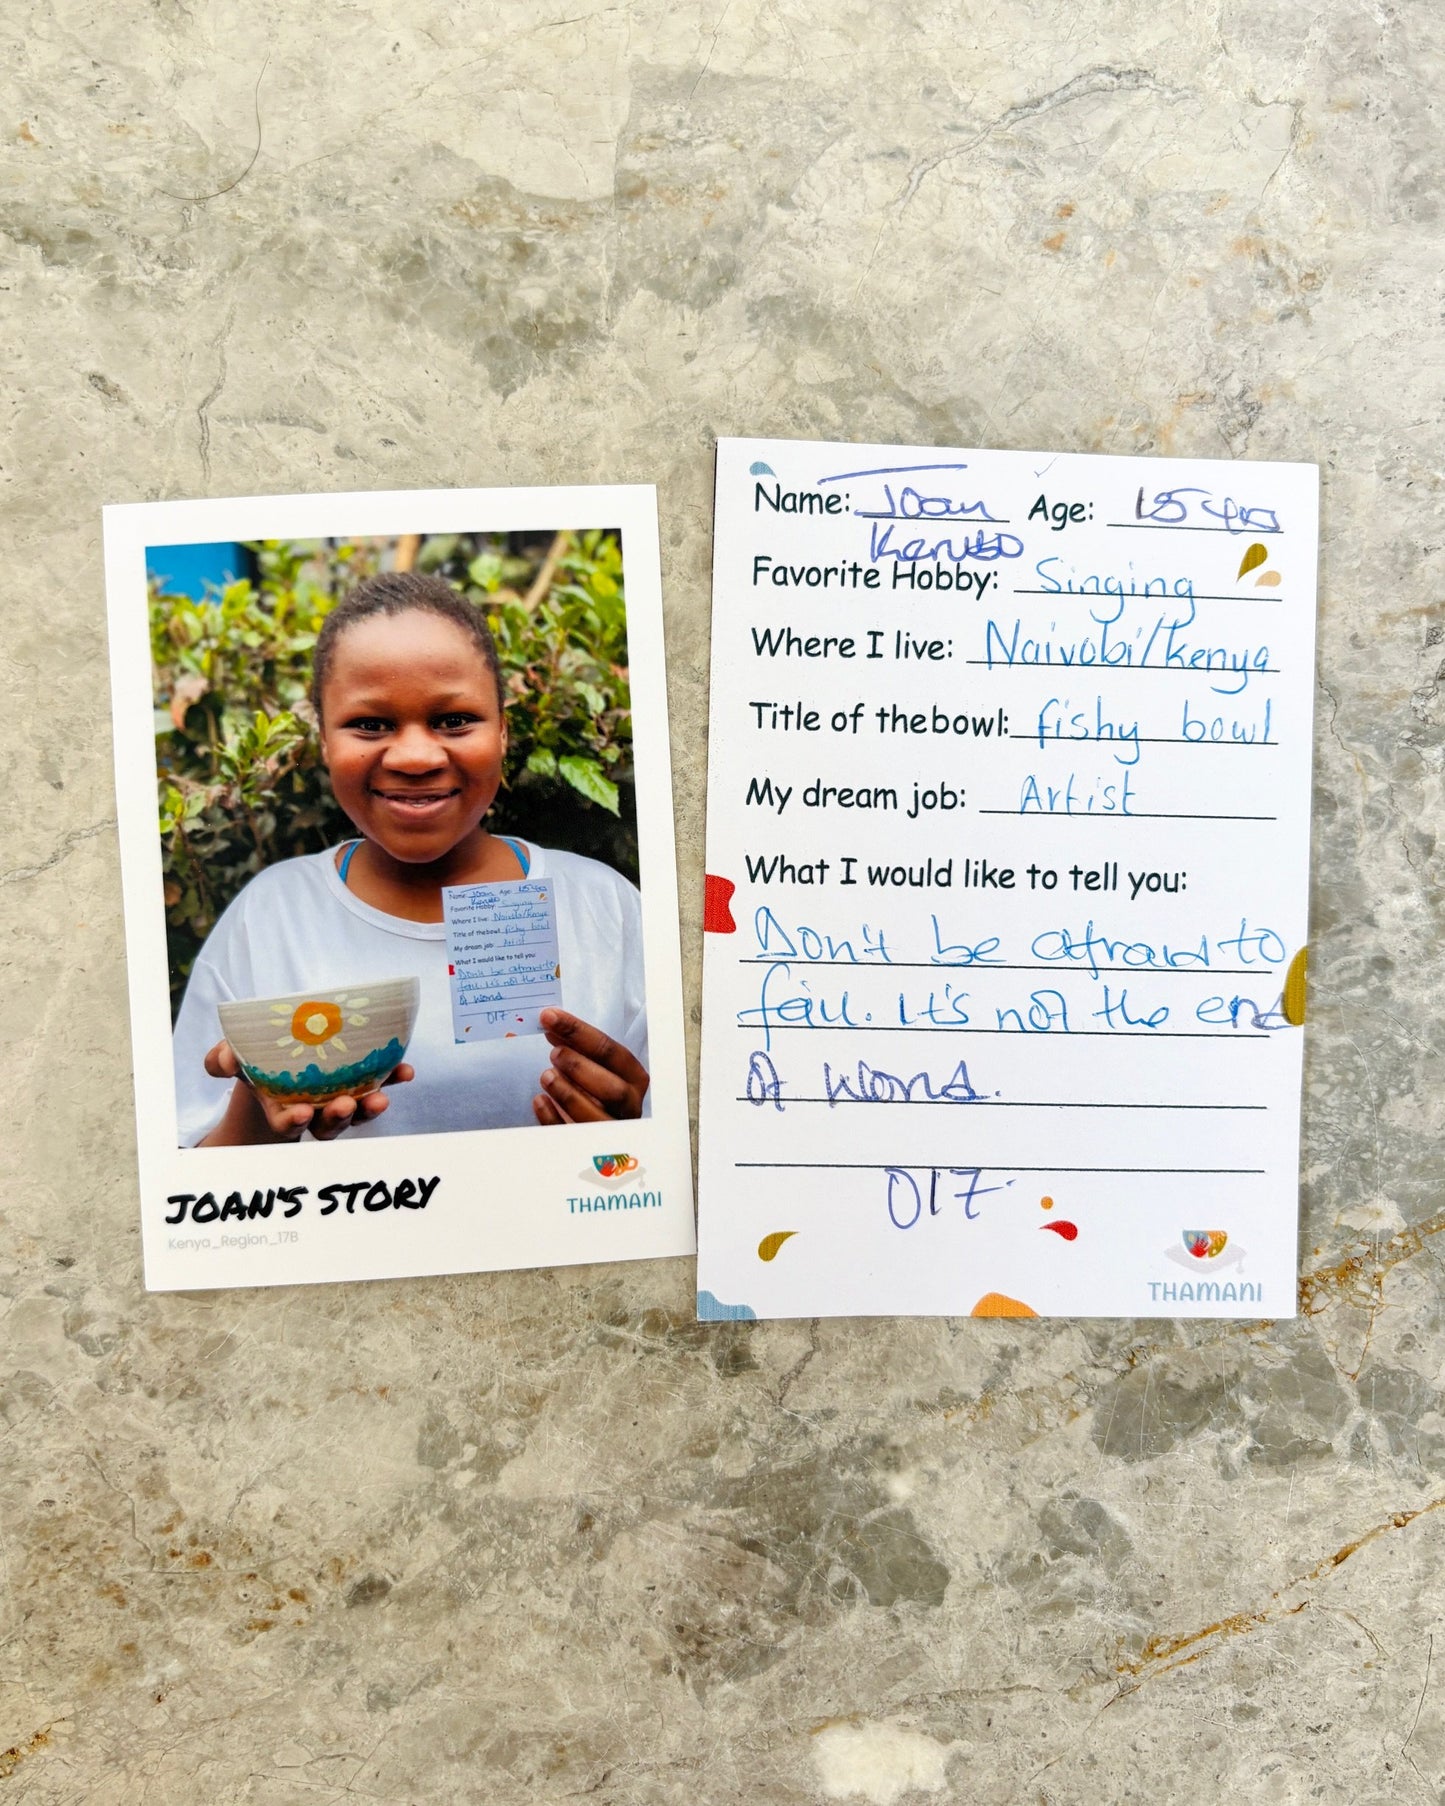 JOAN'S STORY
Kenya_Region_17B
THAMANI
Name: Joan Age: 15 yrs
Favorite Hobby: Singing
Where I live: Nairobi/kenya
Title of the bowl: fishy bowl
My dream job: Artist
What I would like to tell you:
Don't be afraid to
fail. It's not the end
of world.
017
THAMANI